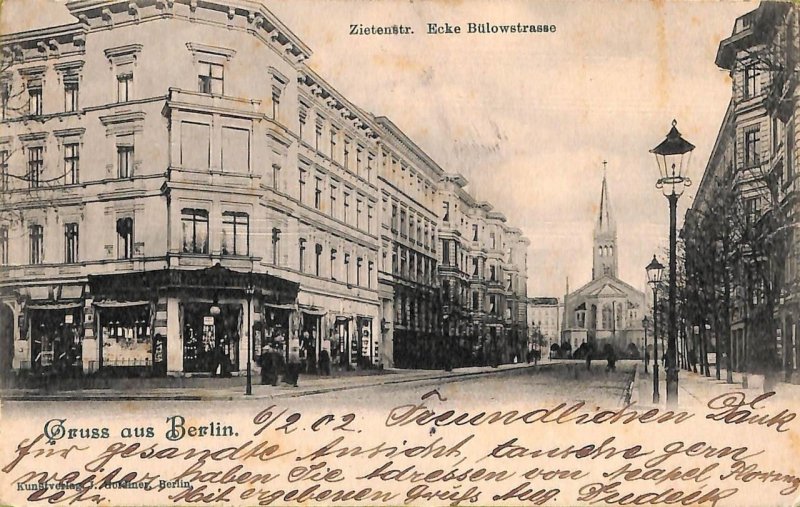 Zietenstr. Ecke Bülowstrasse
Gruss aus Berlin.
6/2. 02. Freundlichen Dank
für gesandte Ansicht, tausche gern
weiter, haben Sie Adressen von Neapel, Florenz
etr. Mit ergebenen Gruß Aug.
Kunstverlag J. Goldiner, Berlin.